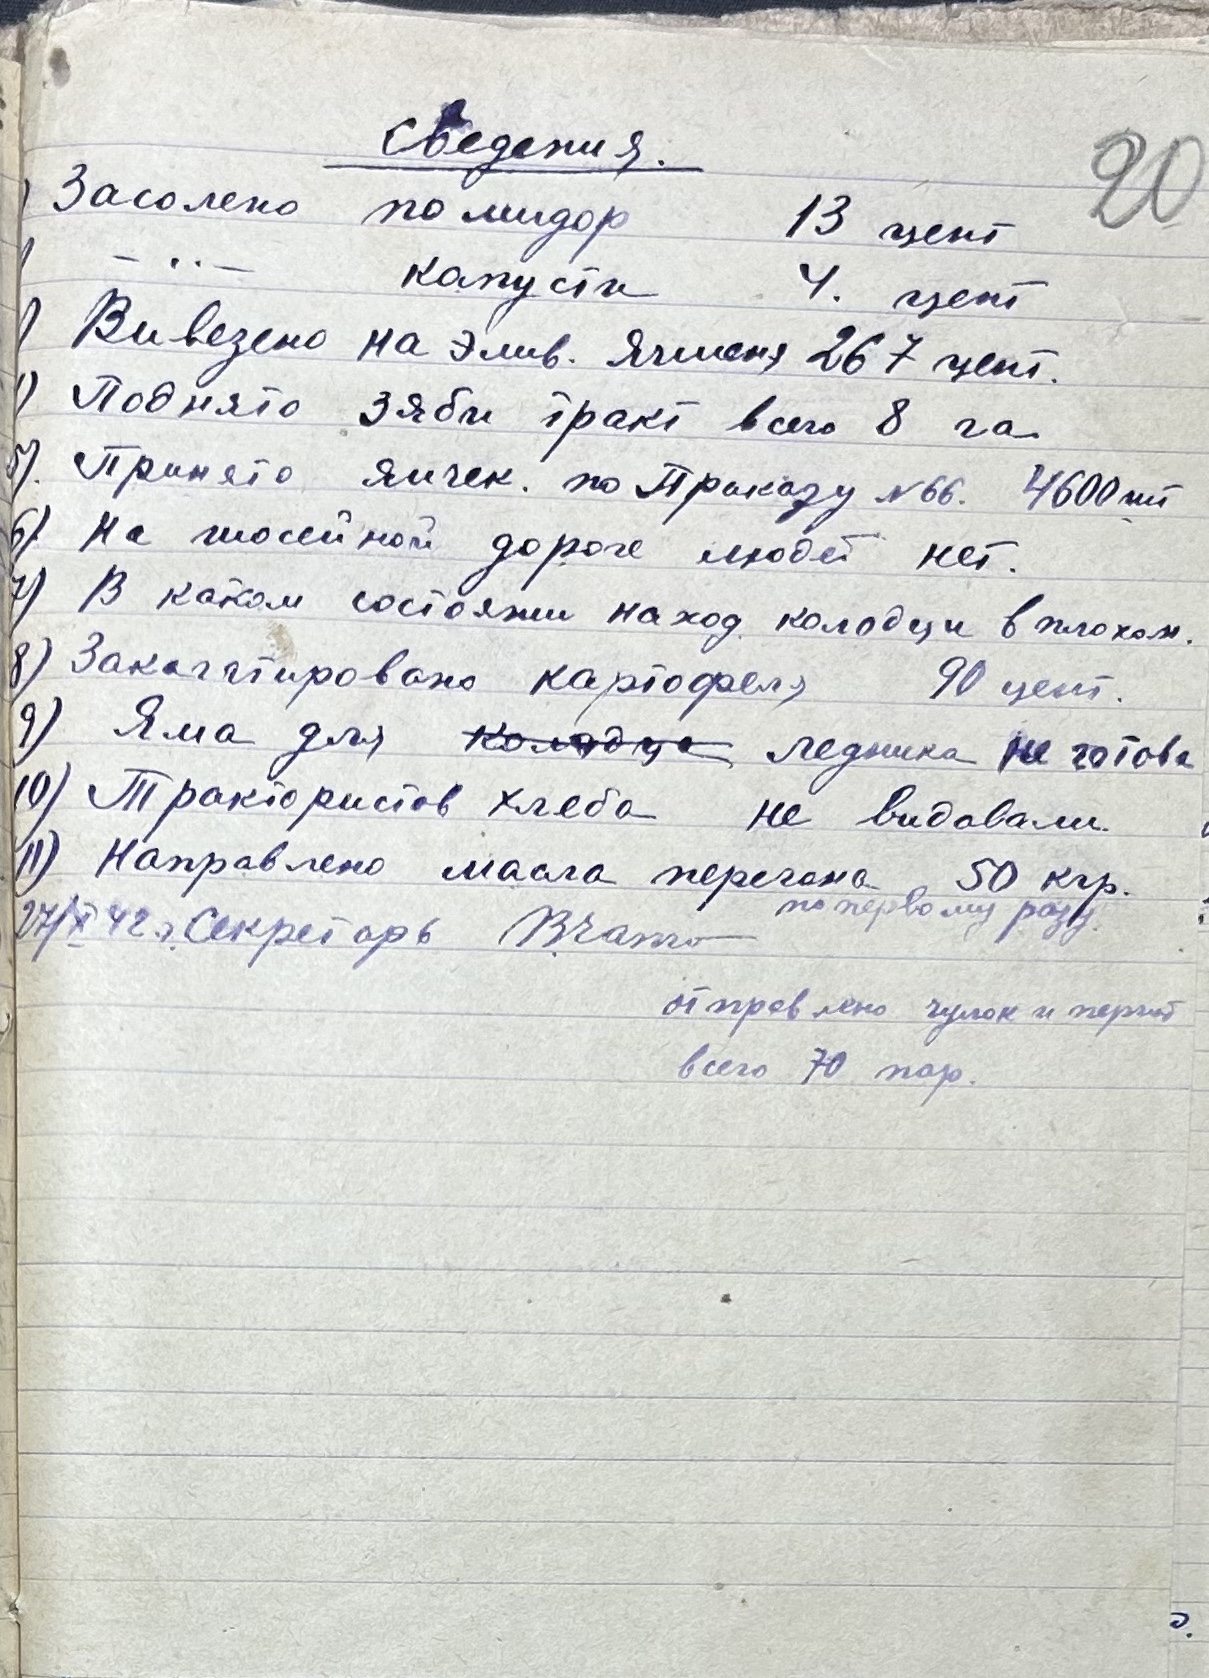 Сведения.
20
) Засолено помидор 13 цент
) —··— капусти 4. цент
) Вивезено на элив. Ячменя 267 цент.
) Поднято зяби тракт всего 8 га
5). Принято яичек. по Приказу №66. 4600 шт
6) На шосейной дороге людей нет.
7) В каком состояни наход колодци в плохом.
8) Закагатировано картофеля 90 цент.
9) Яма для колодца ледника не готова
10) Трактористов хлеба не видавали.
11) Направлено масла перегона 50 кгр.
по первому разу.
27/X 42 г. Секретарь
отправлено чулок и перчат
всего 70 пар.